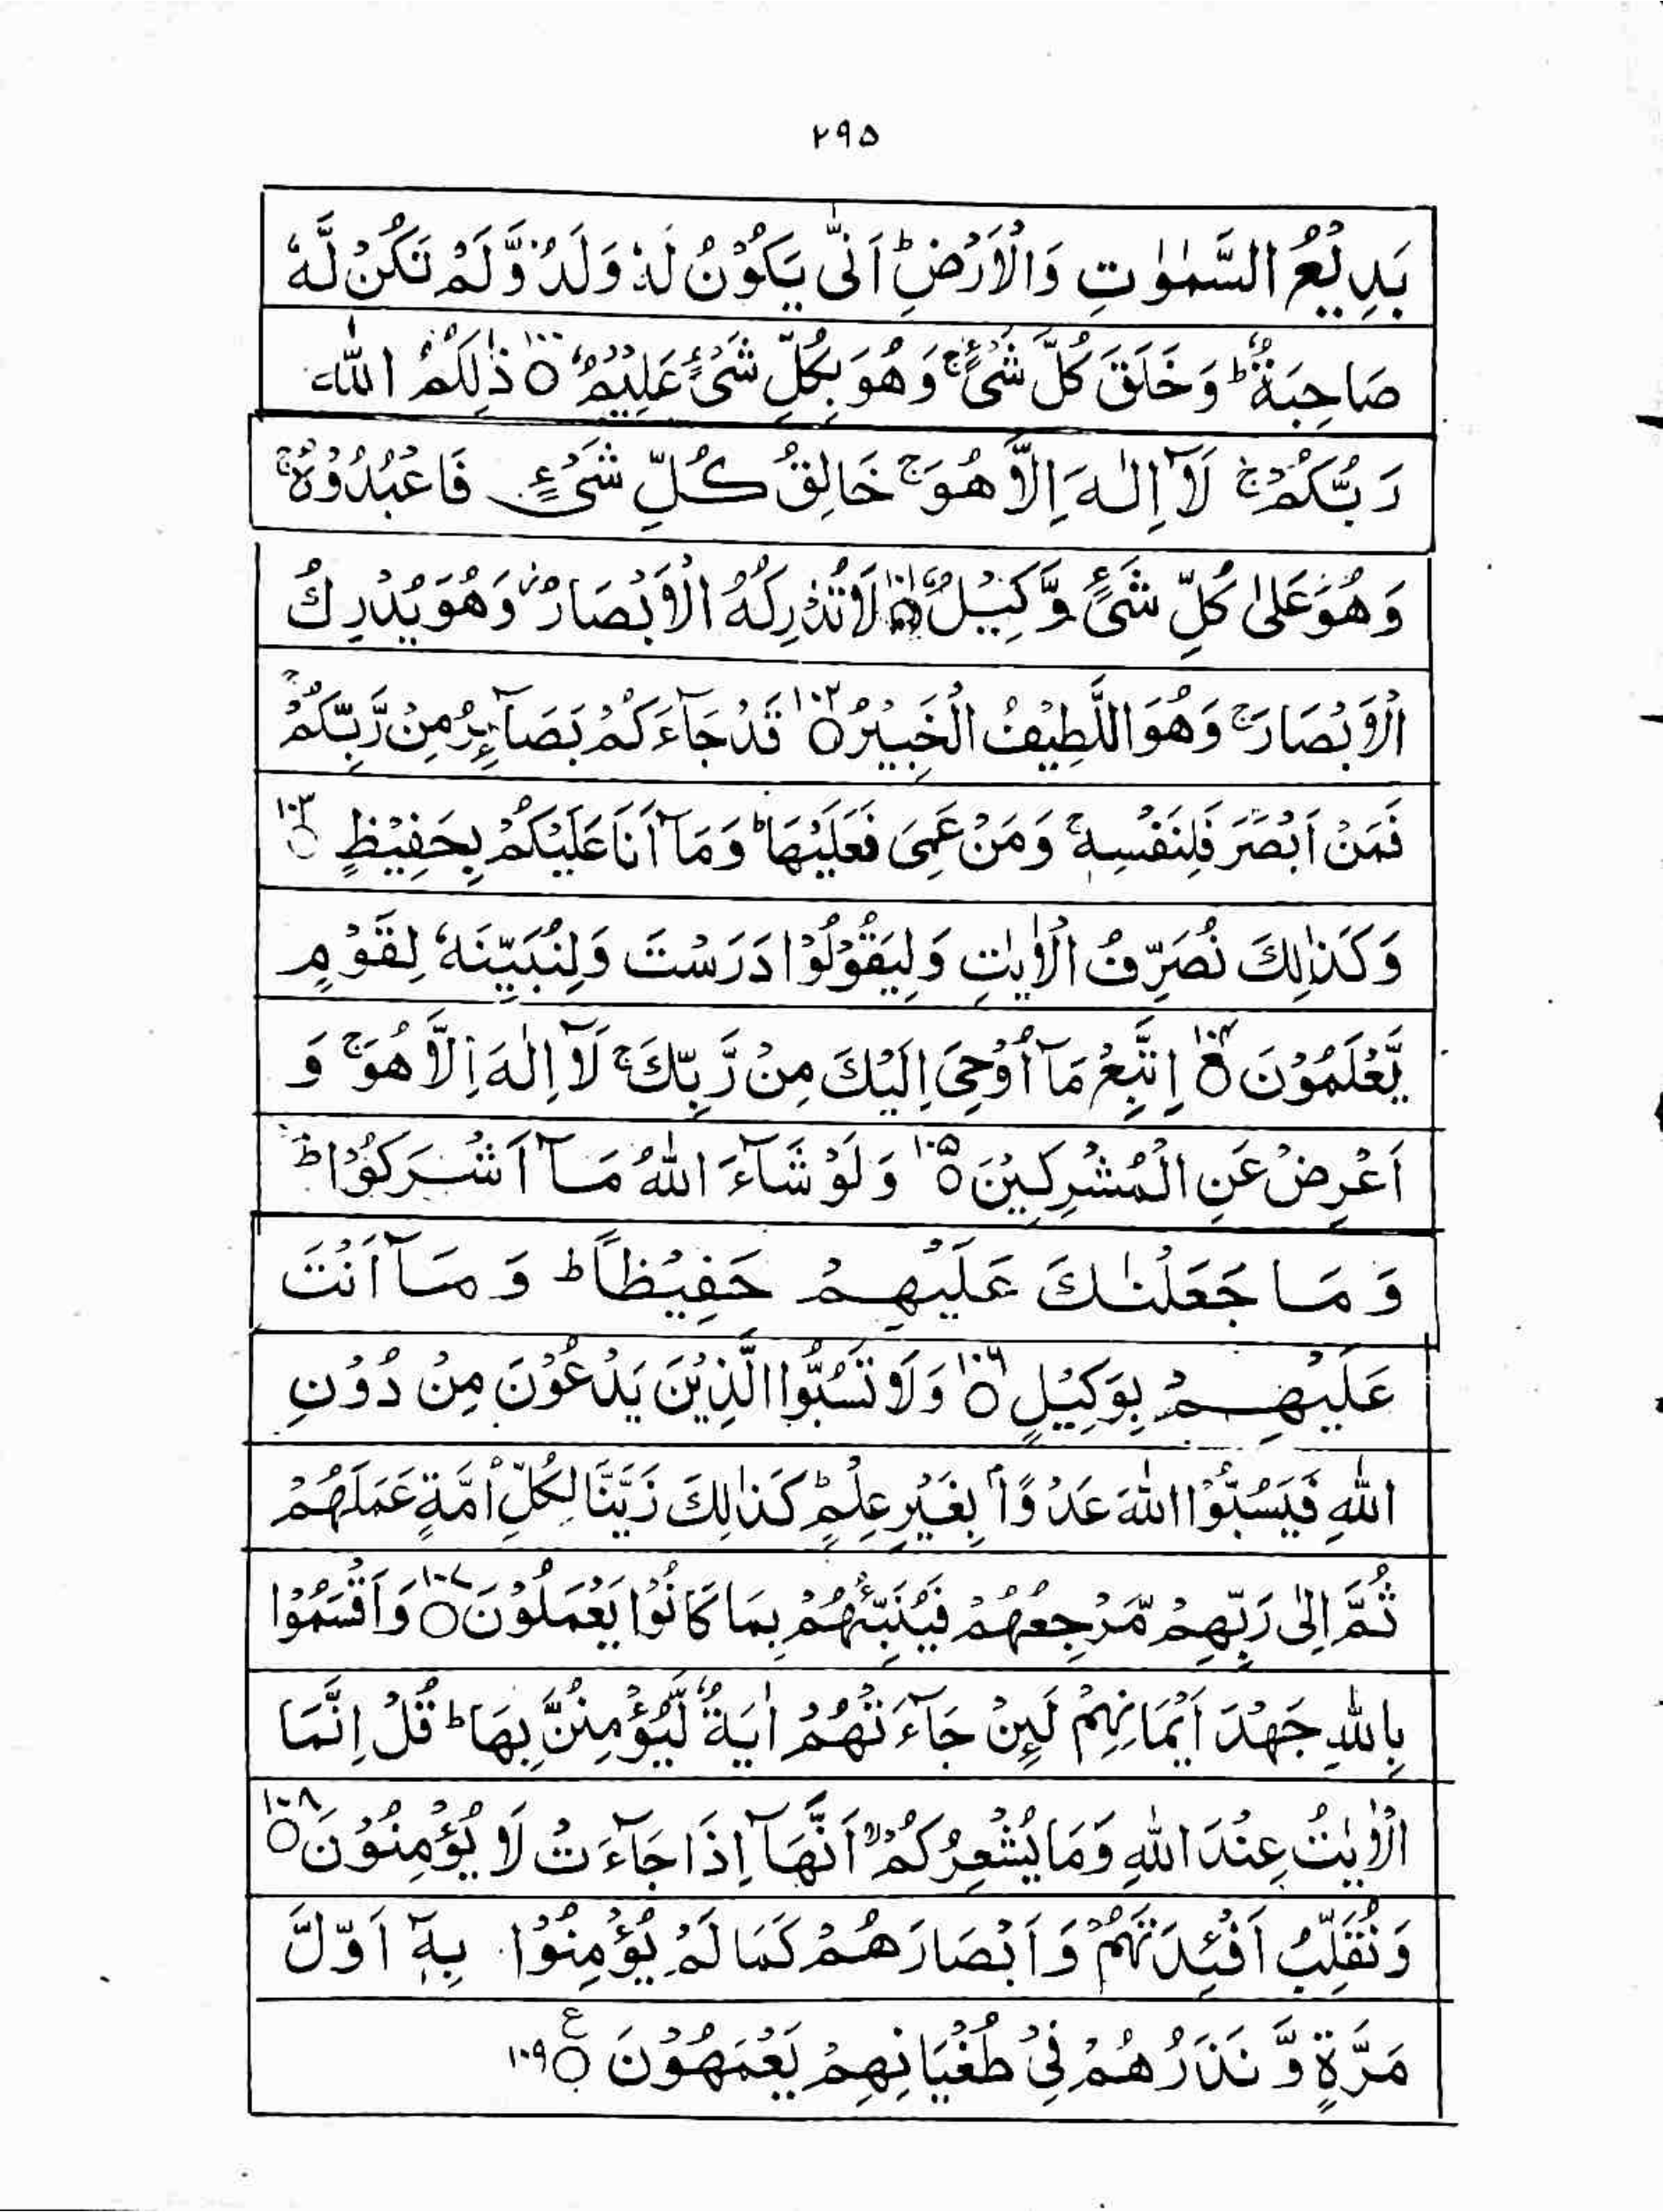 ۲۹۵
بَدِيْعُ السَّمٰوٰتِ وَالْاَرْضِ ؕ اَنّٰى يَكُوْنُ لَهٗ وَلَدٌ وَّلَمْ تَكُنْ لَّهٗ
صَاحِبَةٌ ؕ وَخَلَقَ كُلَّ شَىْءٍ ۚ وَهُوَ بِكُلِّ شَىْءٍ عَلِيْمٌ ۝۱۰۰ ذٰلِكُمُ اللّٰهُ
رَبُّكُمْ ۚ لَاۤ اِلٰهَ اِلَّا هُوَ ۚ خَالِقُ كُلِّ شَىْءٍ فَاعْبُدُوْهُ ۚ
وَهُوَ عَلٰى كُلِّ شَىْءٍ وَّكِيْلٌ ۝۱۰۱ لَا تُدْرِكُهُ الْاَبْصَارُ وَهُوَ يُدْرِكُ
الْاَبْصَارَ ۚ وَهُوَ اللَّطِيْفُ الْخَبِيْرُ ۝۱۰۲ قَدْ جَآءَكُمْ بَصَآىِٕرُ مِنْ رَّبِّكُمْ ۚ
فَمَنْ اَبْصَرَ فَلِنَفْسِهٖ ۚ وَمَنْ عَمِىَ فَعَلَيْهَا ؕ وَمَاۤ اَنَا عَلَيْكُمْ بِحَفِيْظٍ ۝۱۰۳
وَكَذٰلِكَ نُصَرِّفُ الْاٰيٰتِ وَلِيَقُوْلُوْا دَرَسْتَ وَلِنُبَيِّنَهٗ لِقَوْمٍ
يَّعْلَمُوْنَ ۝۱۰۴ اِتَّبِعْ مَاۤ اُوْحِىَ اِلَيْكَ مِنْ رَّبِّكَ ۚ لَاۤ اِلٰهَ اِلَّا هُوَ ۚ وَ
اَعْرِضْ عَنِ الْمُشْرِكِيْنَ ۝۱۰۵ وَلَوْ شَآءَ اللّٰهُ مَاۤ اَشْرَكُوْا ؕ
وَمَا جَعَلْنٰكَ عَلَيْهِمْ حَفِيْظًا ؕ وَمَاۤ اَنْتَ
عَلَيْهِمْ بِوَكِيْلٍ ۝۱۰۶ وَلَا تَسُبُّوا الَّذِيْنَ يَدْعُوْنَ مِنْ دُوْنِ
اللّٰهِ فَيَسُبُّوا اللّٰهَ عَدْوًۢا بِغَيْرِ عِلْمٍ ؕ كَذٰلِكَ زَيَّنَّا لِكُلِّ اُمَّةٍ عَمَلَهُمْ
ثُمَّ اِلٰى رَبِّهِمْ مَّرْجِعُهُمْ فَيُنَبِّئُهُمْ بِمَا كَانُوْا يَعْمَلُوْنَ ۝۱۰۷ وَاَقْسَمُوْا
بِاللّٰهِ جَهْدَ اَيْمَانِهِمْ لَىِٕنْ جَآءَتْهُمْ اٰيَةٌ لَّيُؤْمِنُنَّ بِهَا ؕ قُلْ اِنَّمَا
الْاٰيٰتُ عِنْدَ اللّٰهِ وَمَا يُشْعِرُكُمْ ۙ اَنَّهَاۤ اِذَا جَآءَتْ لَا يُؤْمِنُوْنَ ۝۱۰۸
وَنُقَلِّبُ اَفْئِدَتَهُمْ وَاَبْصَارَهُمْ كَمَا لَمْ يُؤْمِنُوْا بِهٖۤ اَوَّلَ
مَرَّةٍ وَّنَذَرُهُمْ فِىْ طُغْيَانِهِمْ يَعْمَهُوْنَ ۝ع ۱۰۹